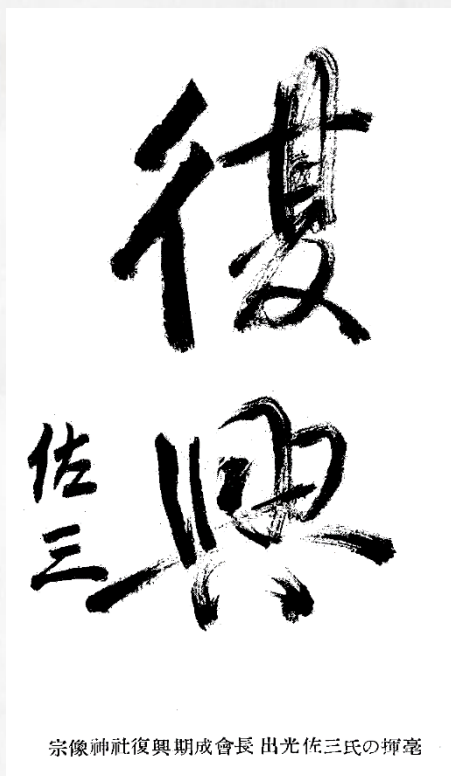 復興
佐三
宗像神社復興期成會長 出光佐三氏の揮毫